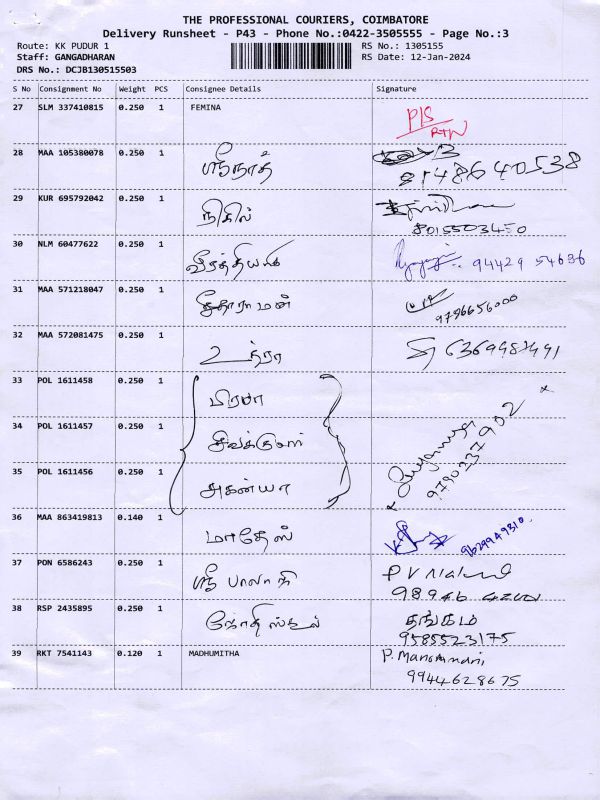 THE PROFESSIONAL COURIERS, COIMBATORE
Delivery Runsheet - P43 - Phone No.:0422-3505555 - Page No.:3
Route: KK PUDUR 1 RS No.: 1305155
Staff: GANGADHARAN RS Date: 12-Jan-2024
DRS No.: DCJB130515503
S No Consignment No Weight PCS Consignee Details Signature
27 SLM 337410815 0.250 1 FEMINA P/S
RTN
28 MAA 105380078 0.250 1 ஸ்ரீநாத்
8148640538
29 KUR 695792042 0.250 1 நிகில்
8015503450
30 NLM 60477622 0.250 1 94429 54636
31 MAA 571218047 0.250 1 சீதாராமன்
9796656000
32 MAA 572081475 0.250 1 உத்ரா 6369983491
33 POL 1611458 0.250 1 பிரபா
34 POL 1611457 0.250 1 சிவக்குமார்
9790237902
35 POL 1611456 0.250 1 அகன்யா
36 MAA 863419813 0.140 1 மாதேஸ் 9629949310
37 PON 6586243 0.250 1 ஸ்ரீ பாலாஜி
98946
38 RSP 2435895 0.250 1 தங்கம்
9585523175
39 RKT 7541143 0.120 1 MADHUMITHA P. Manonmani,
9944628675